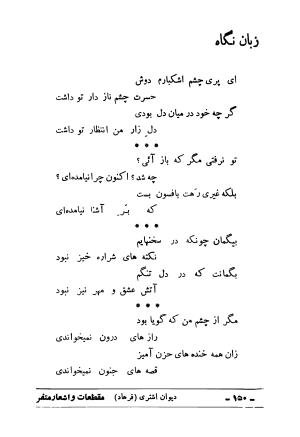 زبان نگاه
ای پری چشم اشکبارم دوش
حسرت چشم ناز دار تو داشت
گر چه خود در میان دل بودی
دل زار من انتظار تو داشت
* * *
تو نرفتی مگر که باز آئی؟
چه شد؟ اکنون چرا نیامده‌ای؟
بلکه غیری رهت بافسون بست
که بر آشنا نیامده‌ای
* * *
بیگمان چونکه در سخنهایم
نکته های شراره خیز نبود
بگمانت که در دل تنگم
آتش عشق و مهر نیز نبود
* * *
مگر از چشم من که گویا بود
راز های درون نمیخواندی
زان همه خنده های حزن آمیز
قصه های جنون نمیخواندی
ـ ۱۵۰ ـ دیوان اشتری (فرهاد) مقطعات و اشعار متفر